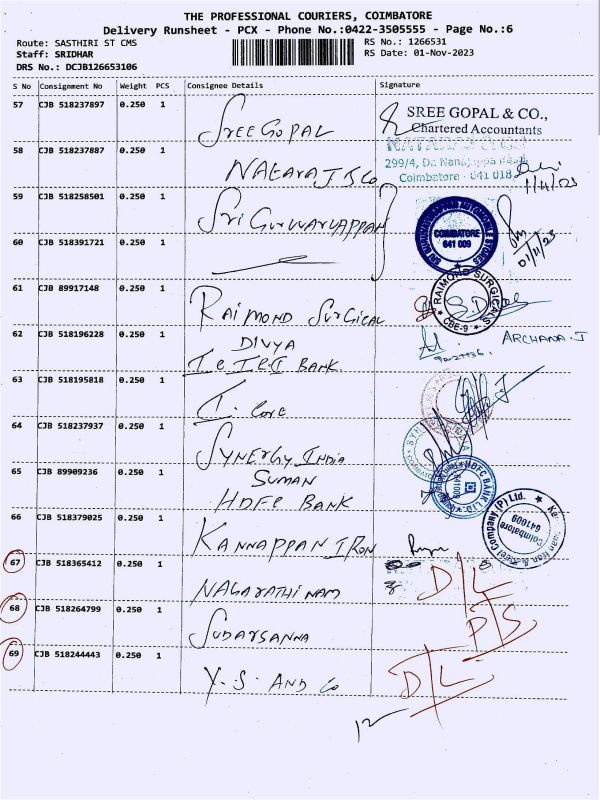 THE PROFESSIONAL COURIERS, COIMBATORE
Delivery Runsheet - PCX - Phone No.:0422-3505555 - Page No.:6
Route: SASTHIRI ST CMS
Staff: SRIDHAR
DRS No.: DCJB126653106
RS No.: 1266531
RS Date: 01-Nov-2023
S No Consignment No Weight PCS Consignee Details Signature
57 CJB 518237897 0.250 1 SREE GOPAL
SREE GOPAL & CO.,
Chartered Accountants
58 CJB 518237887 0.250 1 NATARAJ & Co
299/4, Dr.
Coimbatore - 641 018
1/11/23
59 CJB 518258501 0.250 1 SRI GURUVAYURAPPAN
COIMBATORE
641 009
01/11/23
60 CJB 518391721 0.250 1
61 CJB 89917148 0.250 1 RAIMOND SURGICAL
RAIMOND SURGICALS
CBE-9
62 CJB 518196228 0.250 1 DIVYA
ICICI BANK
ARCHANA. J
63 CJB 518195818 0.250 1 I. Core
64 CJB 518237937 0.250 1 SYNERGY INDIA
65 CJB 89909236 0.250 1 SUMAN
HDFC BANK
HDFC BANK LTD.
641009
66 CJB 518379025 0.250 1 KANNAPPAN IRON
Iron & Steel Company (P) Ltd.
Coimbatore
641009
67 CJB 518365412 0.250 1 NAGARATHINAM
D/L
68 CJB 518264799 0.250 1 SUDARSANNA
P/S
69 CJB 518244443 0.250 1 Y. S. AND Co
D/L